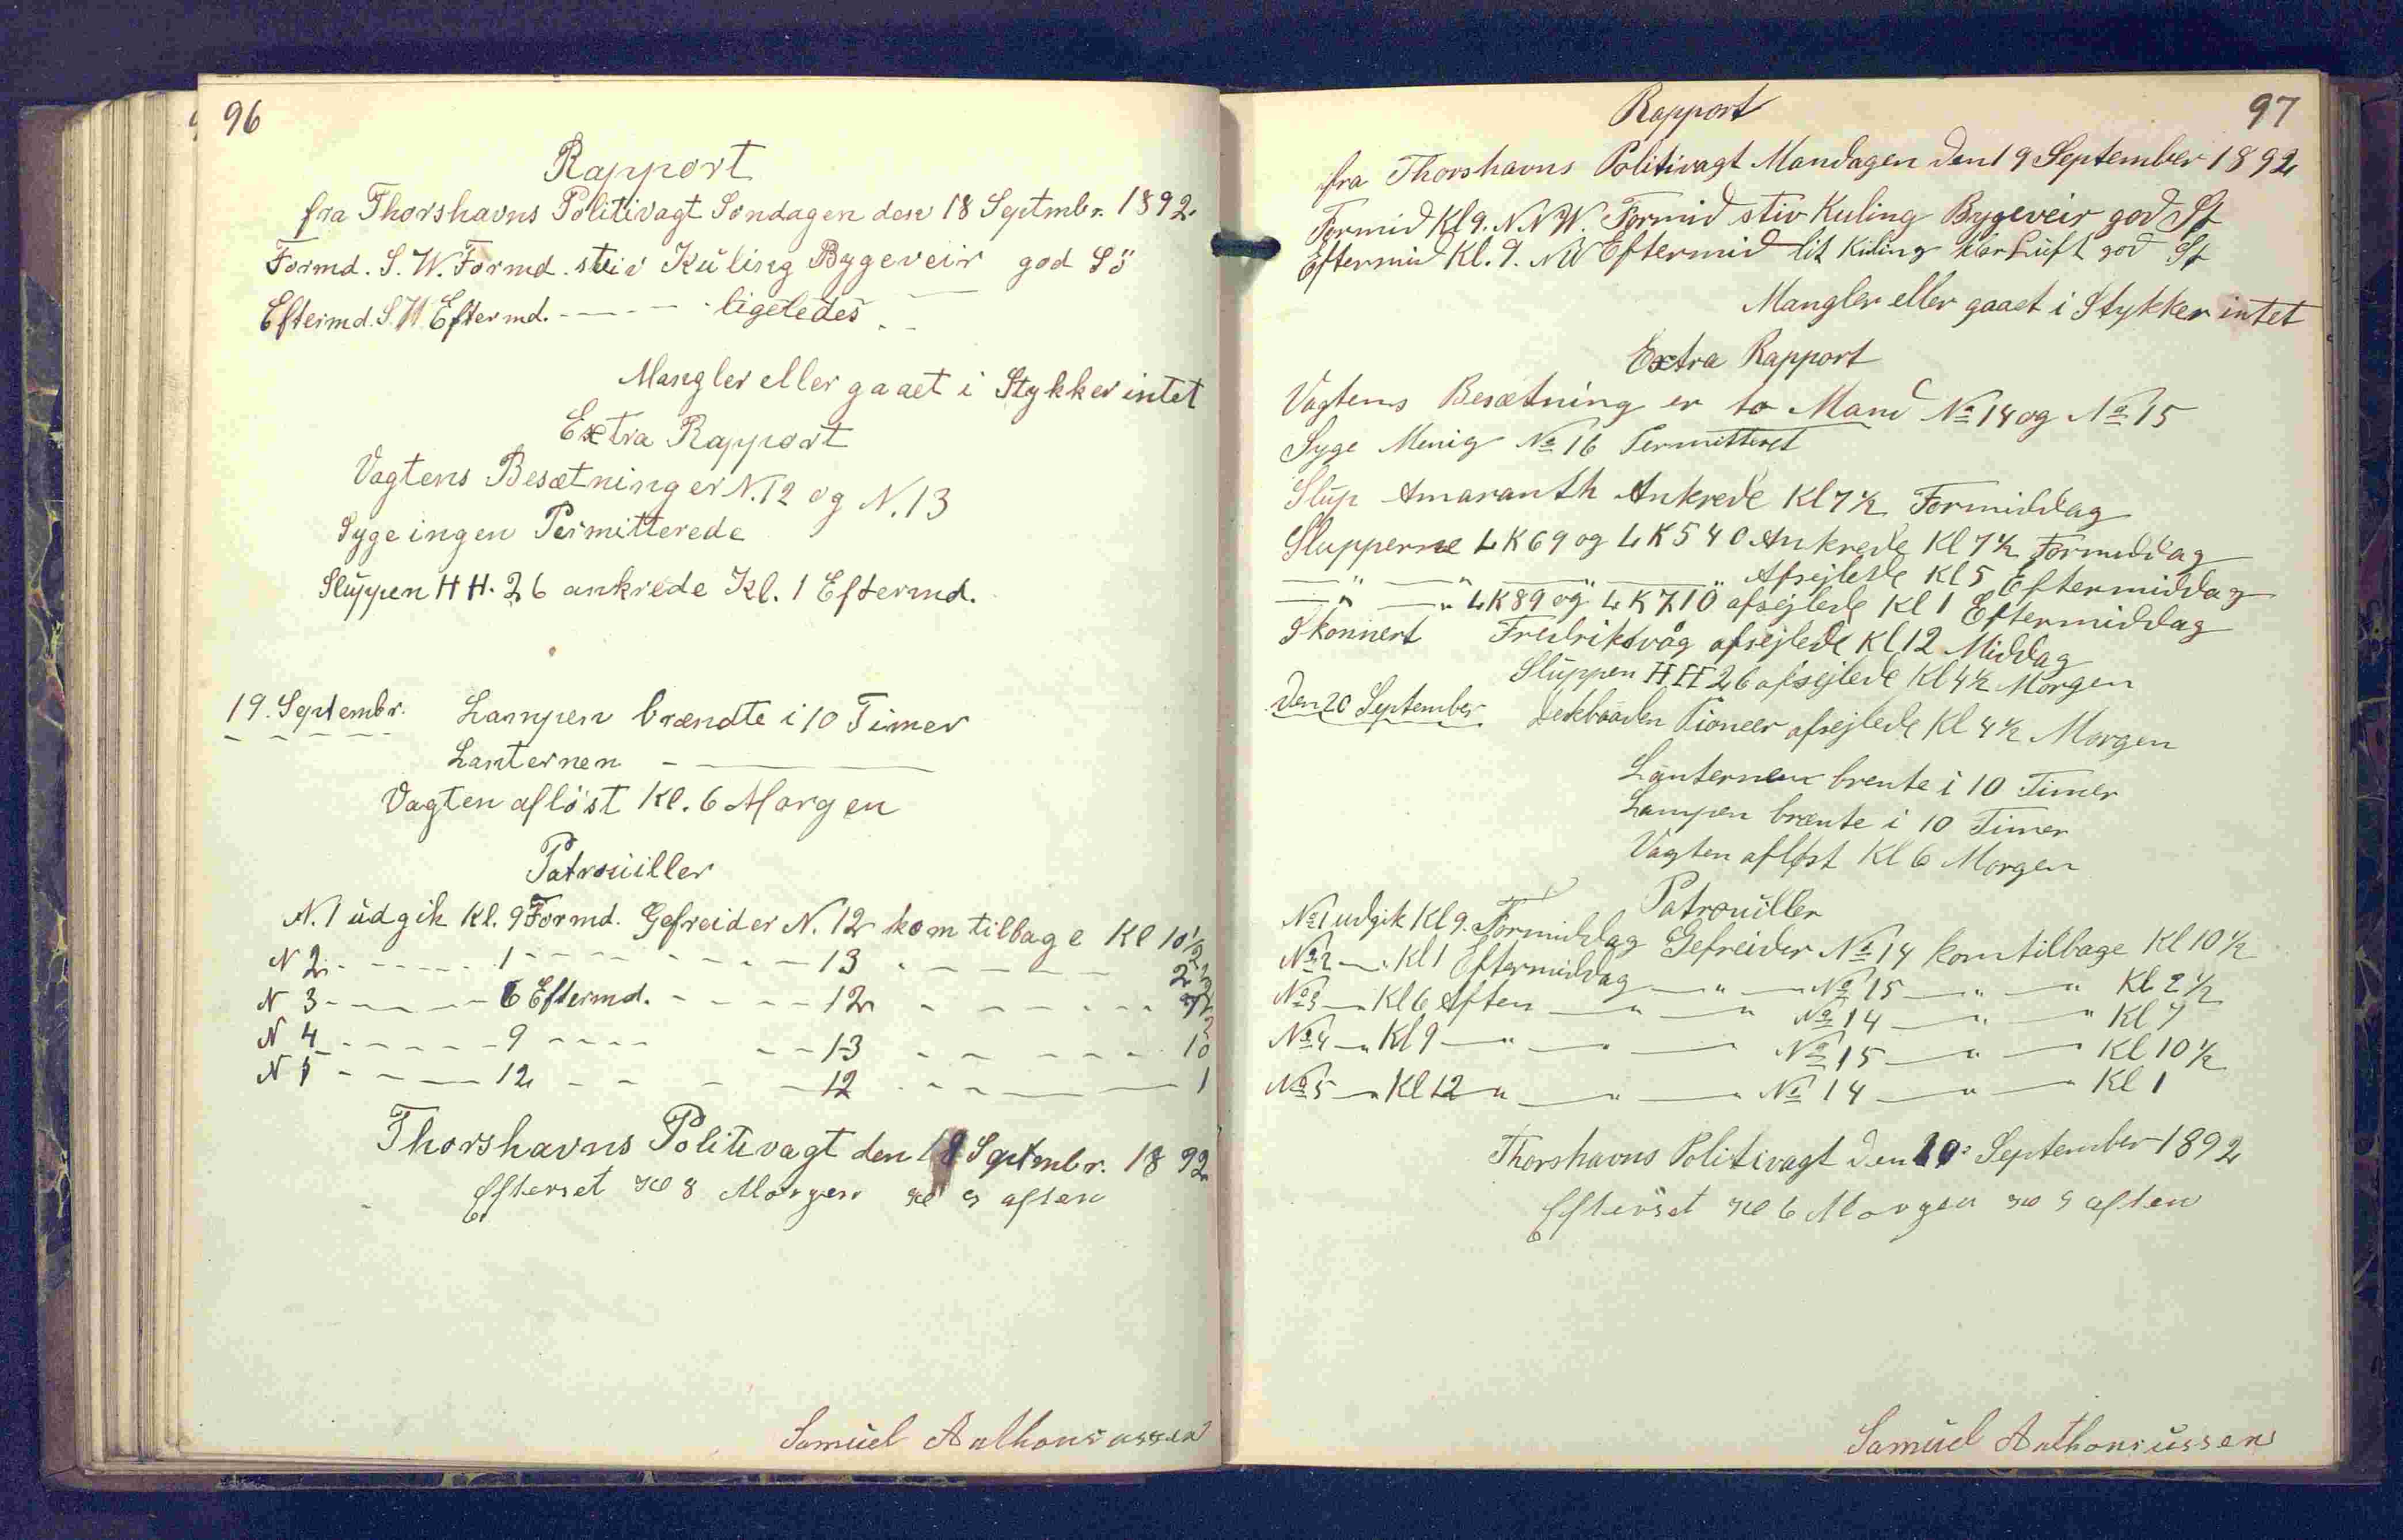 96
Rapport
fra Thorshavns Politivagt Söndagen den 18 Septmbr. 1892.
Formd. S. W. Formd. stiv Kuling Bygeveir god Sö
Eftermd. S. W Eftermd. - — - - ligeledes - -
Mangler eller gaaet i Stykker intet
Extra Rapport
Vagtens Besætning er N. 12 og N. 13
Syge ingen Permitterede
Sluppen HH. 26 ankrede Kl. 1 Eftermd.
19. Septembr. Lampen brændte i 10 Timer
Lanternen - ———
Vagten aflöst Kl. 6 Morgen
Patrouiller
N. 1 udgik Kl. 9 Formd. Gefreider N. 12 kom tilbage Kl 10 1/2
N 2. - - - - - 1 - - - - - - - 13 - - - - - 2 1/2
N 3 - - - - 6 Eftermd. - - - - 12 - - - - - 7 1/2
N 4 - - - - - 9 - - - - - - 13 - - - - - 10
N 5 - - - - 12 - - - - 12 - - - — 1
Thorshavns Politivagt den 18 Septmbr. 1892
Efterset Kl 8 Morgen Kl 9 aften
Samuel Anthoniussen
97
Rapport
fra Thorshavns Politivagt Mandagen den 19 September 1892
Formid Kl 9. N N W. Formid stiv Kuling Bygeveir god Sø
Eftermid Kl. 9. NW Eftermid lit Kuling klar Luft god Sø
Mangler eller gaaet i Stykker intet
Extra Rapport
Vagtens Besætning er to Mand № 14 og № 15
Syge Menig № 16 Permitteret
Slup Amaranth Ankrede Kl 7 1/2 Formiddag
Slupperne LK 69 og LK 540 Ankrede Kl 7 1/2 Formiddag
— " — " — " — " Afsejlede Kl 5 Eftermiddag
— " — " LK 89 og LK 710 afsejlede Kl 1 Eftermiddag
Skonnert Fredriksvåg afsejlede Kl 12 Middag
Sluppen HH 26 afsejlede Kl 4 1/2 Morgen
Den 20 September Dekbaaden Pioneer afsejlede Kl 4 1/2 Morgen
Lanternen brente i 10 Timer
Lampen brænte i 10 Timer
Vagten afløst Kl 6 Morgen
Patrouiller
№ 1 udgik Kl 9. Formiddag Gefreider № 14 kom tilbage Kl 10 1/2
№ 2 — " Kl 1 Eftermiddag — " — № 15 — " — " Kl 2 1/2
№ 3 — Kl 6 Aften — " — " № 14 — " — " Kl 7
№ 4 — " Kl 9 — " — " — № 15 — " — Kl 10 1/2
№ 5 — Kl 12 " — " — " № 14 — " — Kl 1
Thorshavns Politivagt Den September 1892
Efterset Kl 6 Morgen Kl 9 aften
Samuel Anthoniussen